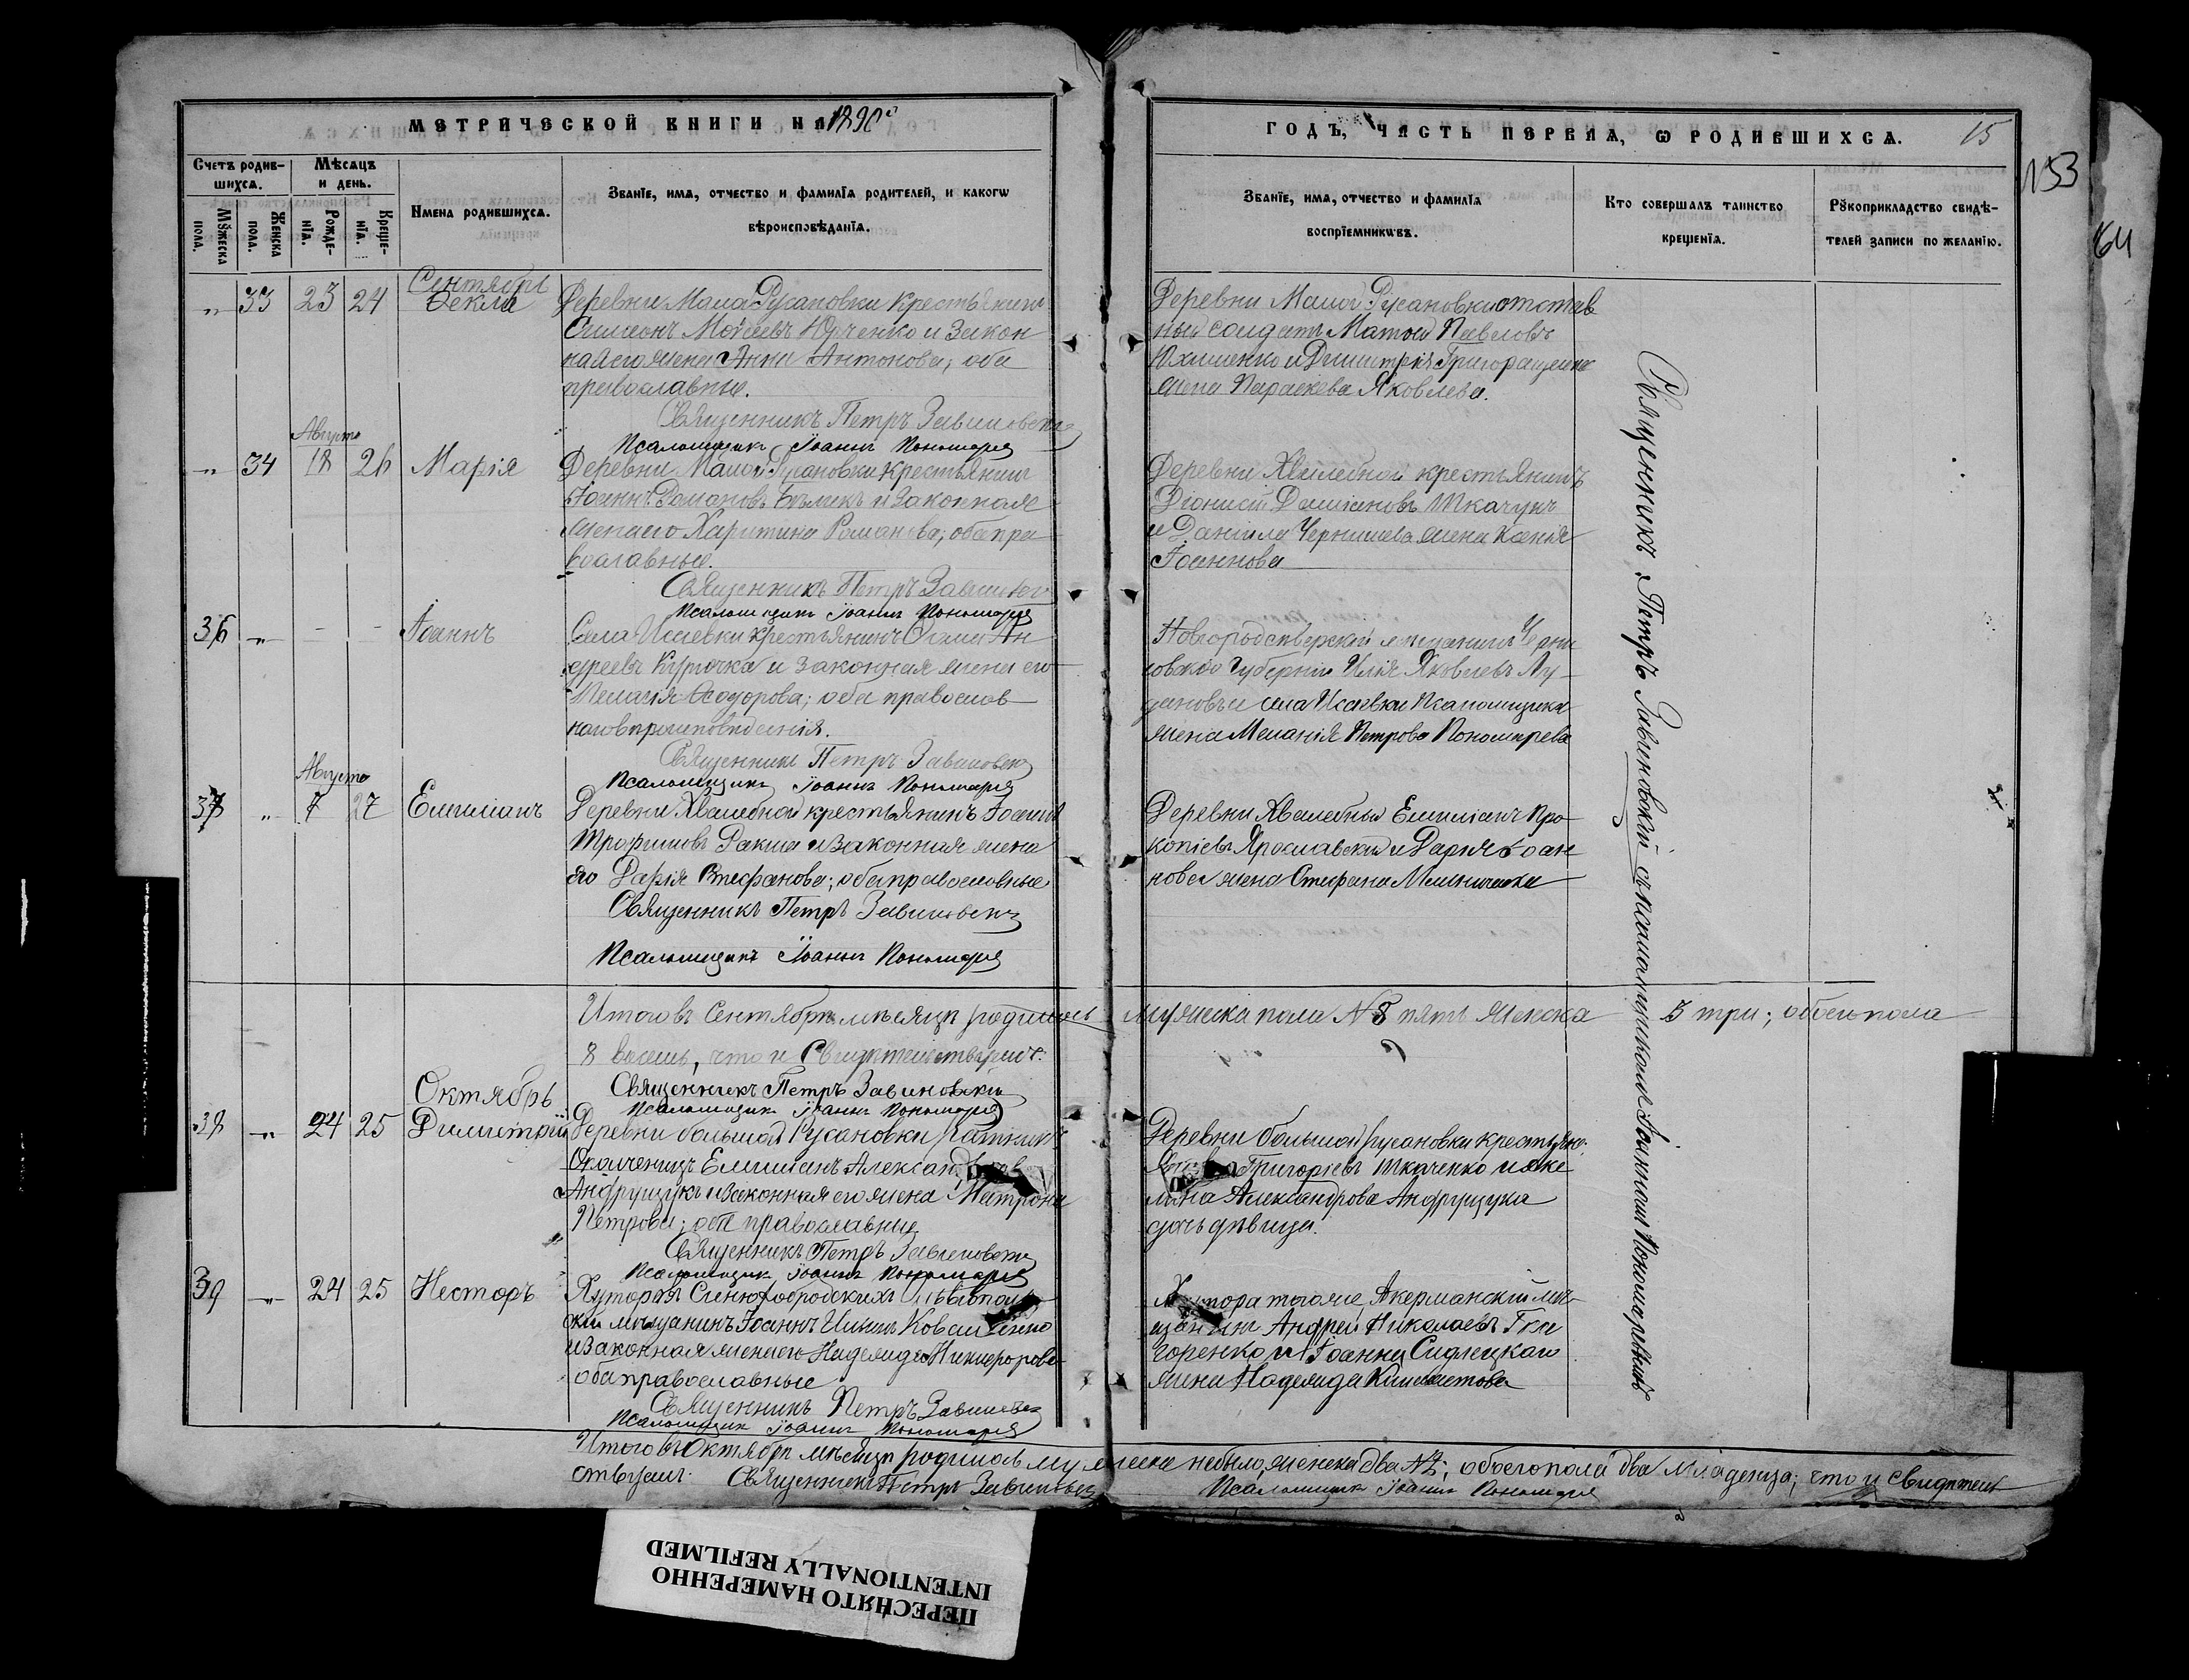 МЕТРИЧЕСКОЙ КНИГИ НА 1890й
ГОДЪ, ЧАСТЬ ПЕРВАЯ, Ѡ РОДИВШИХСЯ.
15
153
64
Счетъ родив-
шихся.
Мѣсяцъ
и день.
Мужеска
пола.
Женска
пола.
Рожде-
нїя.
Креще-
нїя.
Имена родившихся.
Званїе, имя, отчество и фамилїя родителей, и какогѡ
вѣроисповѣданїя.
Званїе, имя, отчество и фамилїя
воспрїемникѡвъ.
Кто совершалъ таинство
крещенїя.
Рукоприкладство свидѣ-
телей записи по желанїю.
Сентябрь
" 33 23 24 Фекла
Деревни Малой Русановки крестьянинъ
Симеонъ Моѵсеевъ Юрченко и закон
ная его жена Анна Антонова; оба
православные.
Священникъ Петръ Завиновскій
Псаломщикъ Іоаннъ Пономарев
Деревни Малой Русановки отстав
ный солдатъ Павловъ
и Димитрія Григоращенко
жена Параскева Яковлева.
Августа
" 34 18 26 Марія
Деревни Малой Русановки крестьянинъ
Іоаннъ и законная
жена его Харитина Романова; оба пра
вославные.
Священникъ Петръ Завинов
Псаломщикъ Іоаннъ Пономарев
Деревни Хвалебной крестьянинъ
Діонисій Даміановъ Ткачукъ
и Даніила Чернишева жена Ксенія
Іоаннова
36 " - - Іоаннъ
Села Исаевки крестьянинъ Ан
дреевъ Курочка и законная жена его
Меланія Ѳеодорова; оба православ
наго вѣроисповѣданія.
Священникъ Петръ Завиновскій
Псаломщикъ Іоаннъ Пономарев
Новгородсѣверскій мещанинъ Черни
говской губерніи Илія Яковлевъ Лу-
дановъ и села Исаевки Псаломщика
жена Меланія Петрова Пономарева
Августа
37 " 7 27 Емиліанъ
Деревни Хвалебной крестьянинъ Іоаннъ
Трофимовъ Ракша и законная жена
его Дарія Стефанова; оба православные
Священникъ Петръ Завиновскій
Псаломщикъ Іоаннъ Пономарев
Деревни Хвалебный Емиліанъ Про
копіевъ Ярославскій и Дарія Іоан
нова жена Стефана Мельничка
Священникъ Петръ Завиновскій съ псаломщикомъ Іоанномъ Пономаревымъ
Итого въ Сентябрѣ мѣсяцѣ родилось мужеска пола № 5 пять женска 3 три; обоего пола
8 восемь, что и свидетельствуемъ.
Священникъ Петръ Завиновскій
Псаломщикъ Іоаннъ Пономарев
Октябрь
38 " 24 25 Димитрій
Деревни большой Русановки ратникъ
Ополченецъ Емиліанъ Александровъ
Андрущукъ и законная его жена Матрона
Петрова; оба православные
Священникъ Петръ Завиновскій
Псаломщикъ Іоаннъ Пономарев
Деревни большой русановки крестьян.
Григоріевъ Ткаченко и Аке
лина Александрова Андрущука
дочь дѣвица.
39 " 24 25 Несторъ
Хутора
мѣщанинъ Іоаннъ Коваленко
и законная жена его Надежда Никифорова
оба православные
Священникъ Петръ Завиновскій
Псаломщикъ Іоаннъ Пономарев
Хутора тогоже Акерманскій мѣ-
щанинъ Андрей Николаевъ Гри
горенко и Іоанна Сидлецкаго
жена Надежда
Итого въ Октябрѣ мѣсяцѣ родилось мужеска небыло, женска два № 2; обоего пола два младенца; что и свидѣтель
ствуемъ. Священникъ Петръ Завиновскій Псаломщикъ Іоаннъ Пономарев
ПЕРЕСНЯТО НАМЕРЕННО
INTENTIONALLY REFILMED